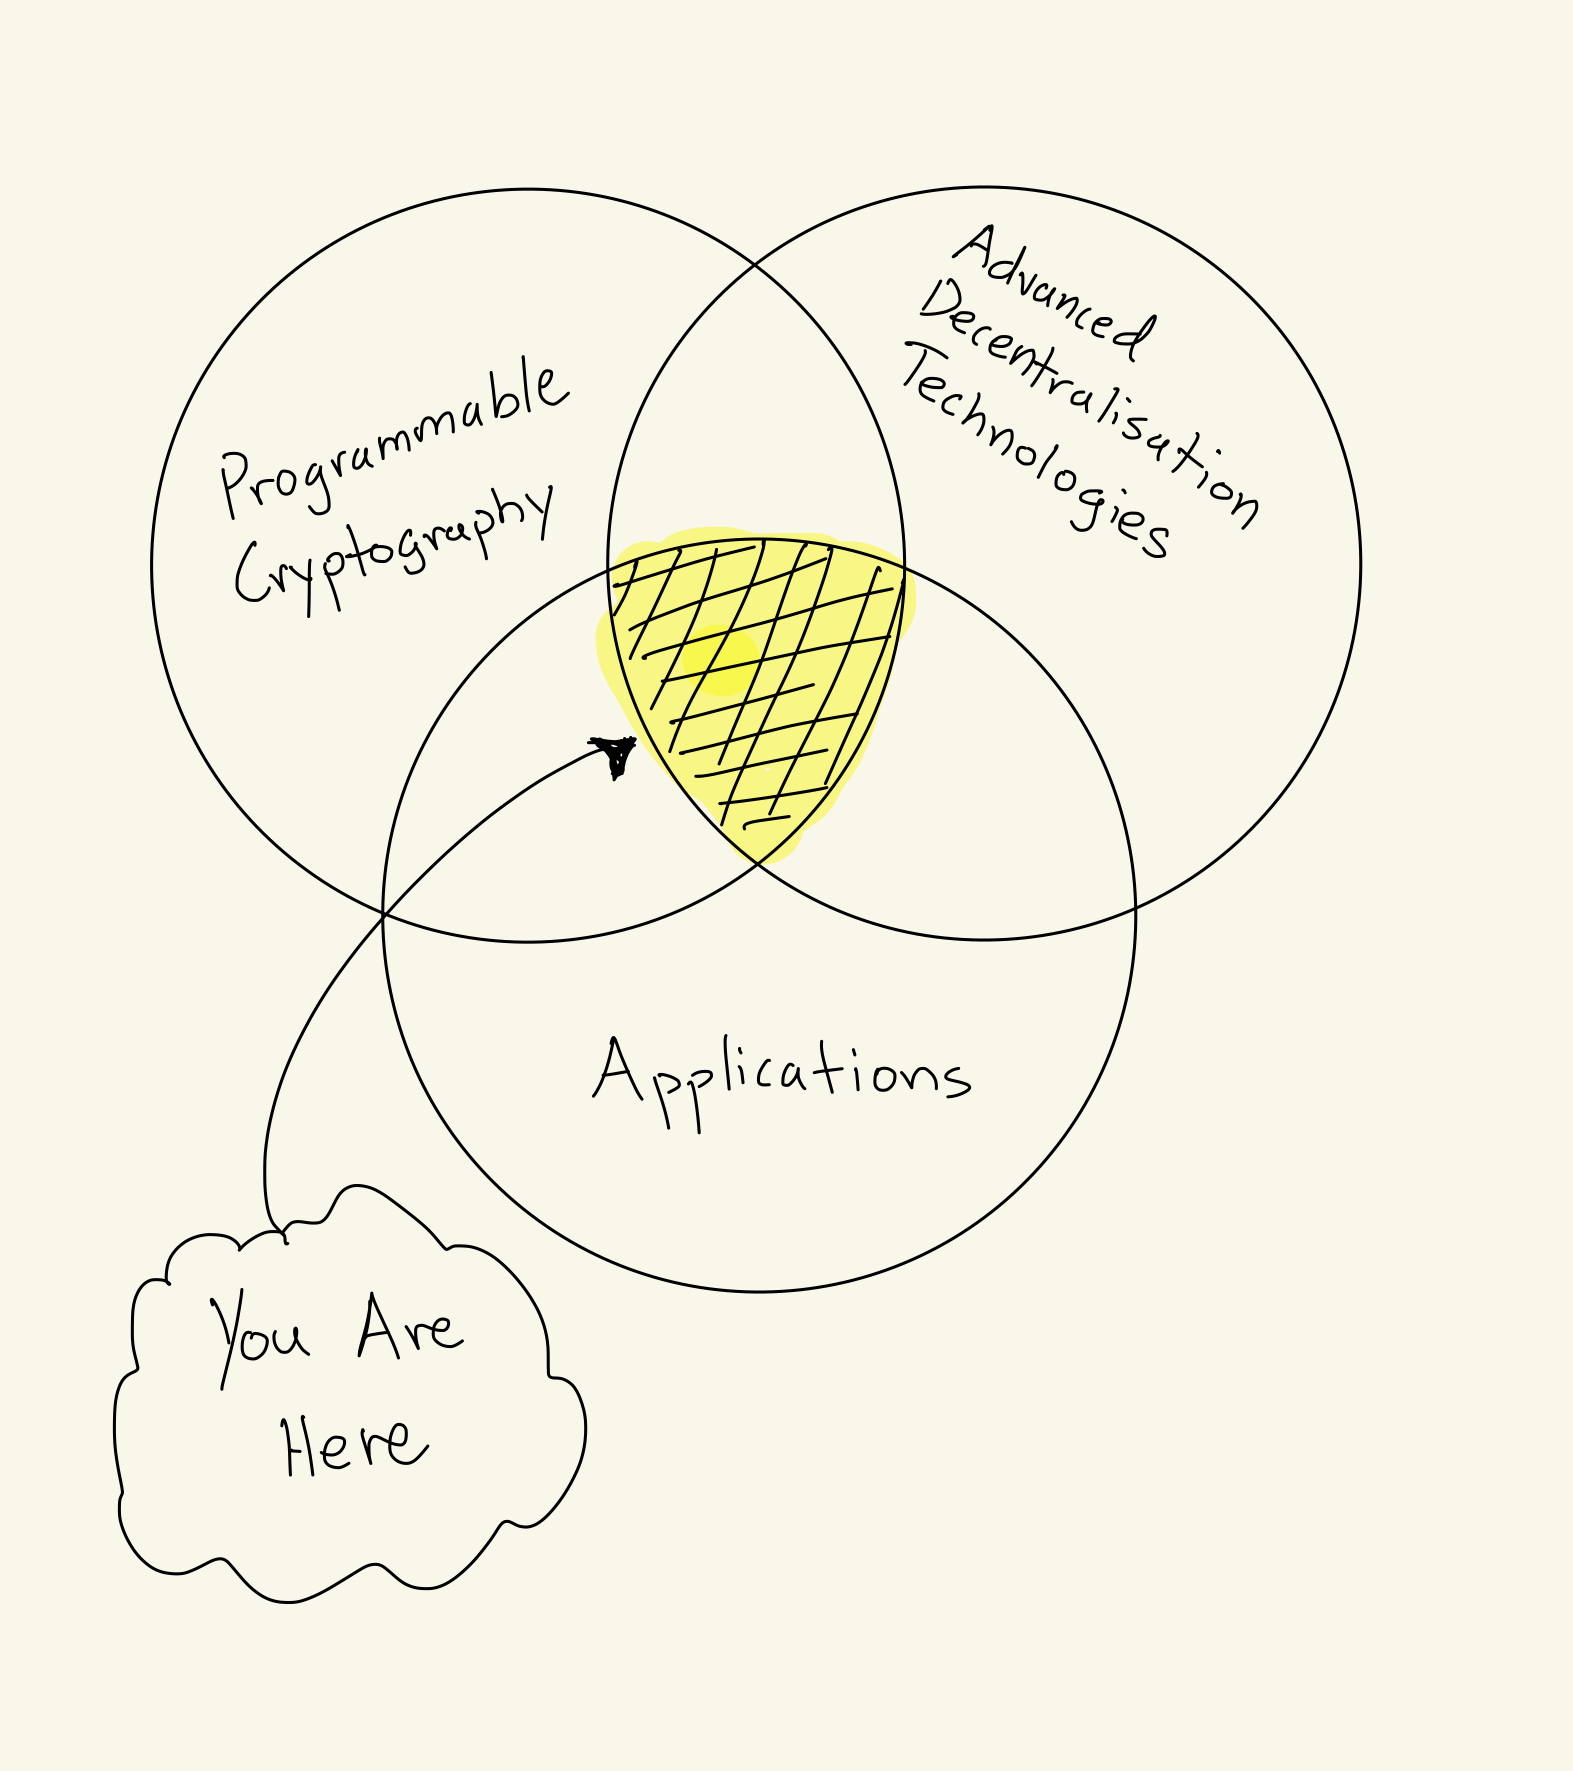 Programmable
Cryptography
Advanced
Decentralisation
Technologies
Applications
You Are
Here